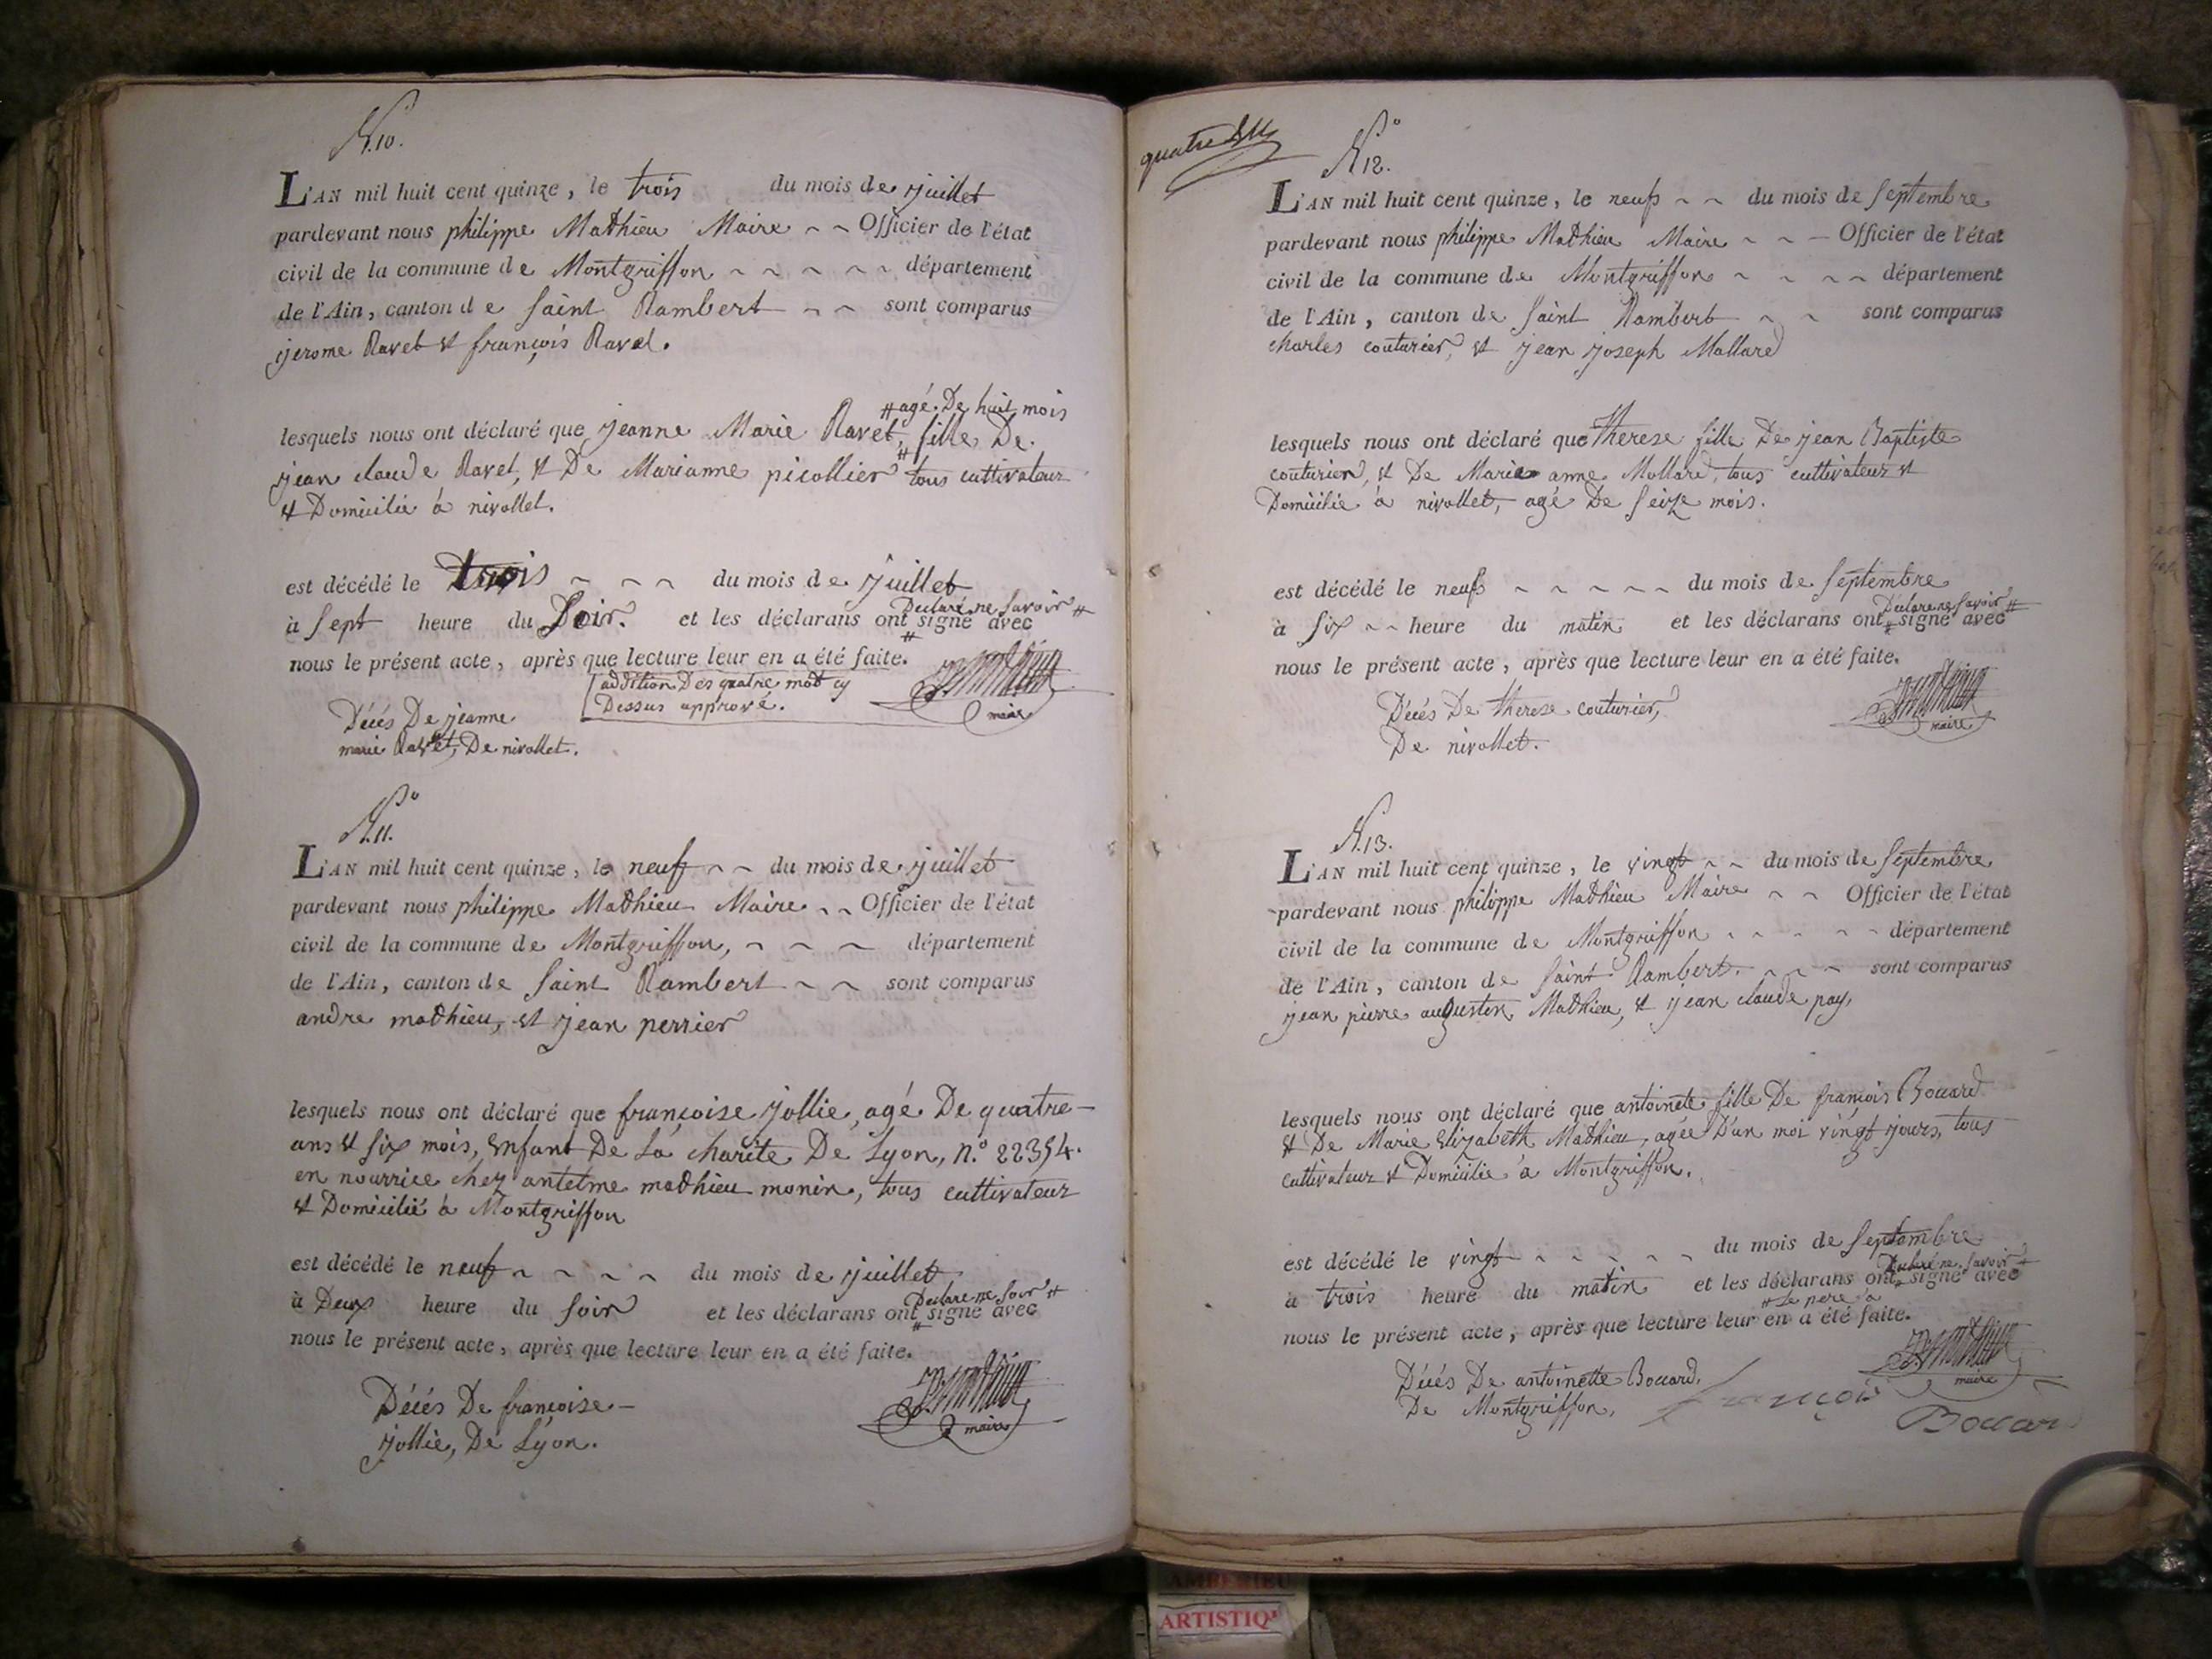 N.10.
L'AN mil huit cent quinze, le trois du mois de juillet
pardevant nous philippe Mathieu Maire ~ ~ Officier de l'état
civil de la commune de Montgriffon ~ ~ ~ ~ ~ département
de l'Ain, canton de saint Rambert ~ ~ sont comparus
jerome Ravet et françois Ravet.
# agé De huit mois
lesquels nous ont déclaré que jeanne Marie Ravet, fille De
jean claude Ravet, et De Marianne picollier # tous cultivateur
et Domicilié à nivollet.
est décédé le trois ~ ~ ~ du mois de juillet
Declaré ne savoir #
à sept heure du soir. et les déclarans ont # signé avec
nous le présent acte, après que lecture leur en a été faite.
addition Des quatre mot cy
Dessus apprové.
maire
Décés De jeanne
marie Ravet, De nivollet.
N.o 11.
L'AN mil huit cent quinze, le neuf ~ ~ du mois de juillet
pardevant nous philippe Mathieu Maire ~ ~ Officier de l'état
civil de la commune de Montgriffon, ~ ~ ~ département
de l'Ain, canton de saint Rambert ~ ~ sont comparus
andre mathieu, et jean perrier
lesquels nous ont déclaré que françoise jollie, agé De quatre -
ans et six mois, Enfant De La charité De Lyon, n.o 22354.
en nourrice chez antelme mathieu monin, tous cultivateur
et Domicilié à Montgriffon
est décédé le neuf ~ ~ ~ ~ du mois de juillet
Declare ne soir #
à Deux heure du soir et les déclarans ont # signé avec
nous le présent acte, après que lecture leur en a été faite.
maire
Décés De francoise -
jollie, De Lyon.
quatre
N.o 12.
L'AN mil huit cent quinze, le neuf ~ ~ du mois de septembre
pardevant nous philippe Mathieu Maire ~ ~ - Officier de l'état
civil de la commune de Montgriffon ~ ~ ~ ~ département
de l'Ain, canton de saint Rambert ~ ~ sont comparus
charles couturier, et jean joseph Mollard
lesquels nous ont déclaré que therese fille De jean Baptiste
couturier, et De Marie anne Mollard, tous cultivateur et
Domicilié à nivollet, agé De seize mois.
est décédé le neuf ~ ~ ~ ~ ~ du mois de septembre
Declare ne savoir #
à six ~ ~ heure du matin et les déclarans ont # signé avec
nous le présent acte, après que lecture leur en a été faite.
maire
Décés De therese couturier,
De nivollet.
N.13.
L'AN mil huit cent quinze, le vingt ~ ~ du mois de septembre
pardevant nous philippe Mathieu Maire ~ ~ Officier de l'état
civil de la commune de Montgriffon ~ ~ ~ ~ ~ département
de l'Ain, canton de saint Rambert. ~ ~ ~ sont comparus
jean pierre augustin Mathieu, et jean claude pay,
lesquels nous ont déclaré que antoinete fille De francois Bocard
et De Marie Elizabeth Mathieu, agée D'un moi vingt jours, tous
cultivateur et Domicilié à Montgriffon.
est décédé le vingt ~ ~ ~ ~ ~ du mois de septembre
Declaré ne savoir #
à trois heure du matin et les déclarans ont # signé avec
# Le pere a
nous le présent acte, après que lecture leur en a été faite.
maire
Décés De antoinette Boccard.
De Montgriffon.
françois
Boccard
AMBERIEU
ARTISTIQ